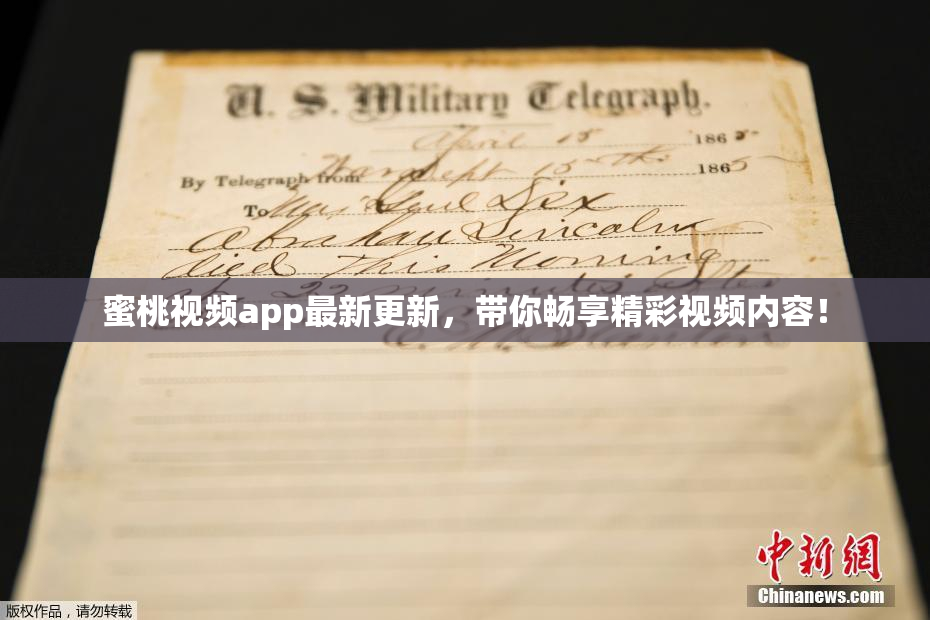 U. S. Military Telegraph.
April 15 1865
By Telegraph from War Dept 15th 1865
To Maj Genl Dix
Abraham Lincoln
died This Morning
at 22 minutes after
蜜桃视频app最新更新，带你畅享精彩视频内容！
中新网
Chinanews.com
版权作品，请勿转载